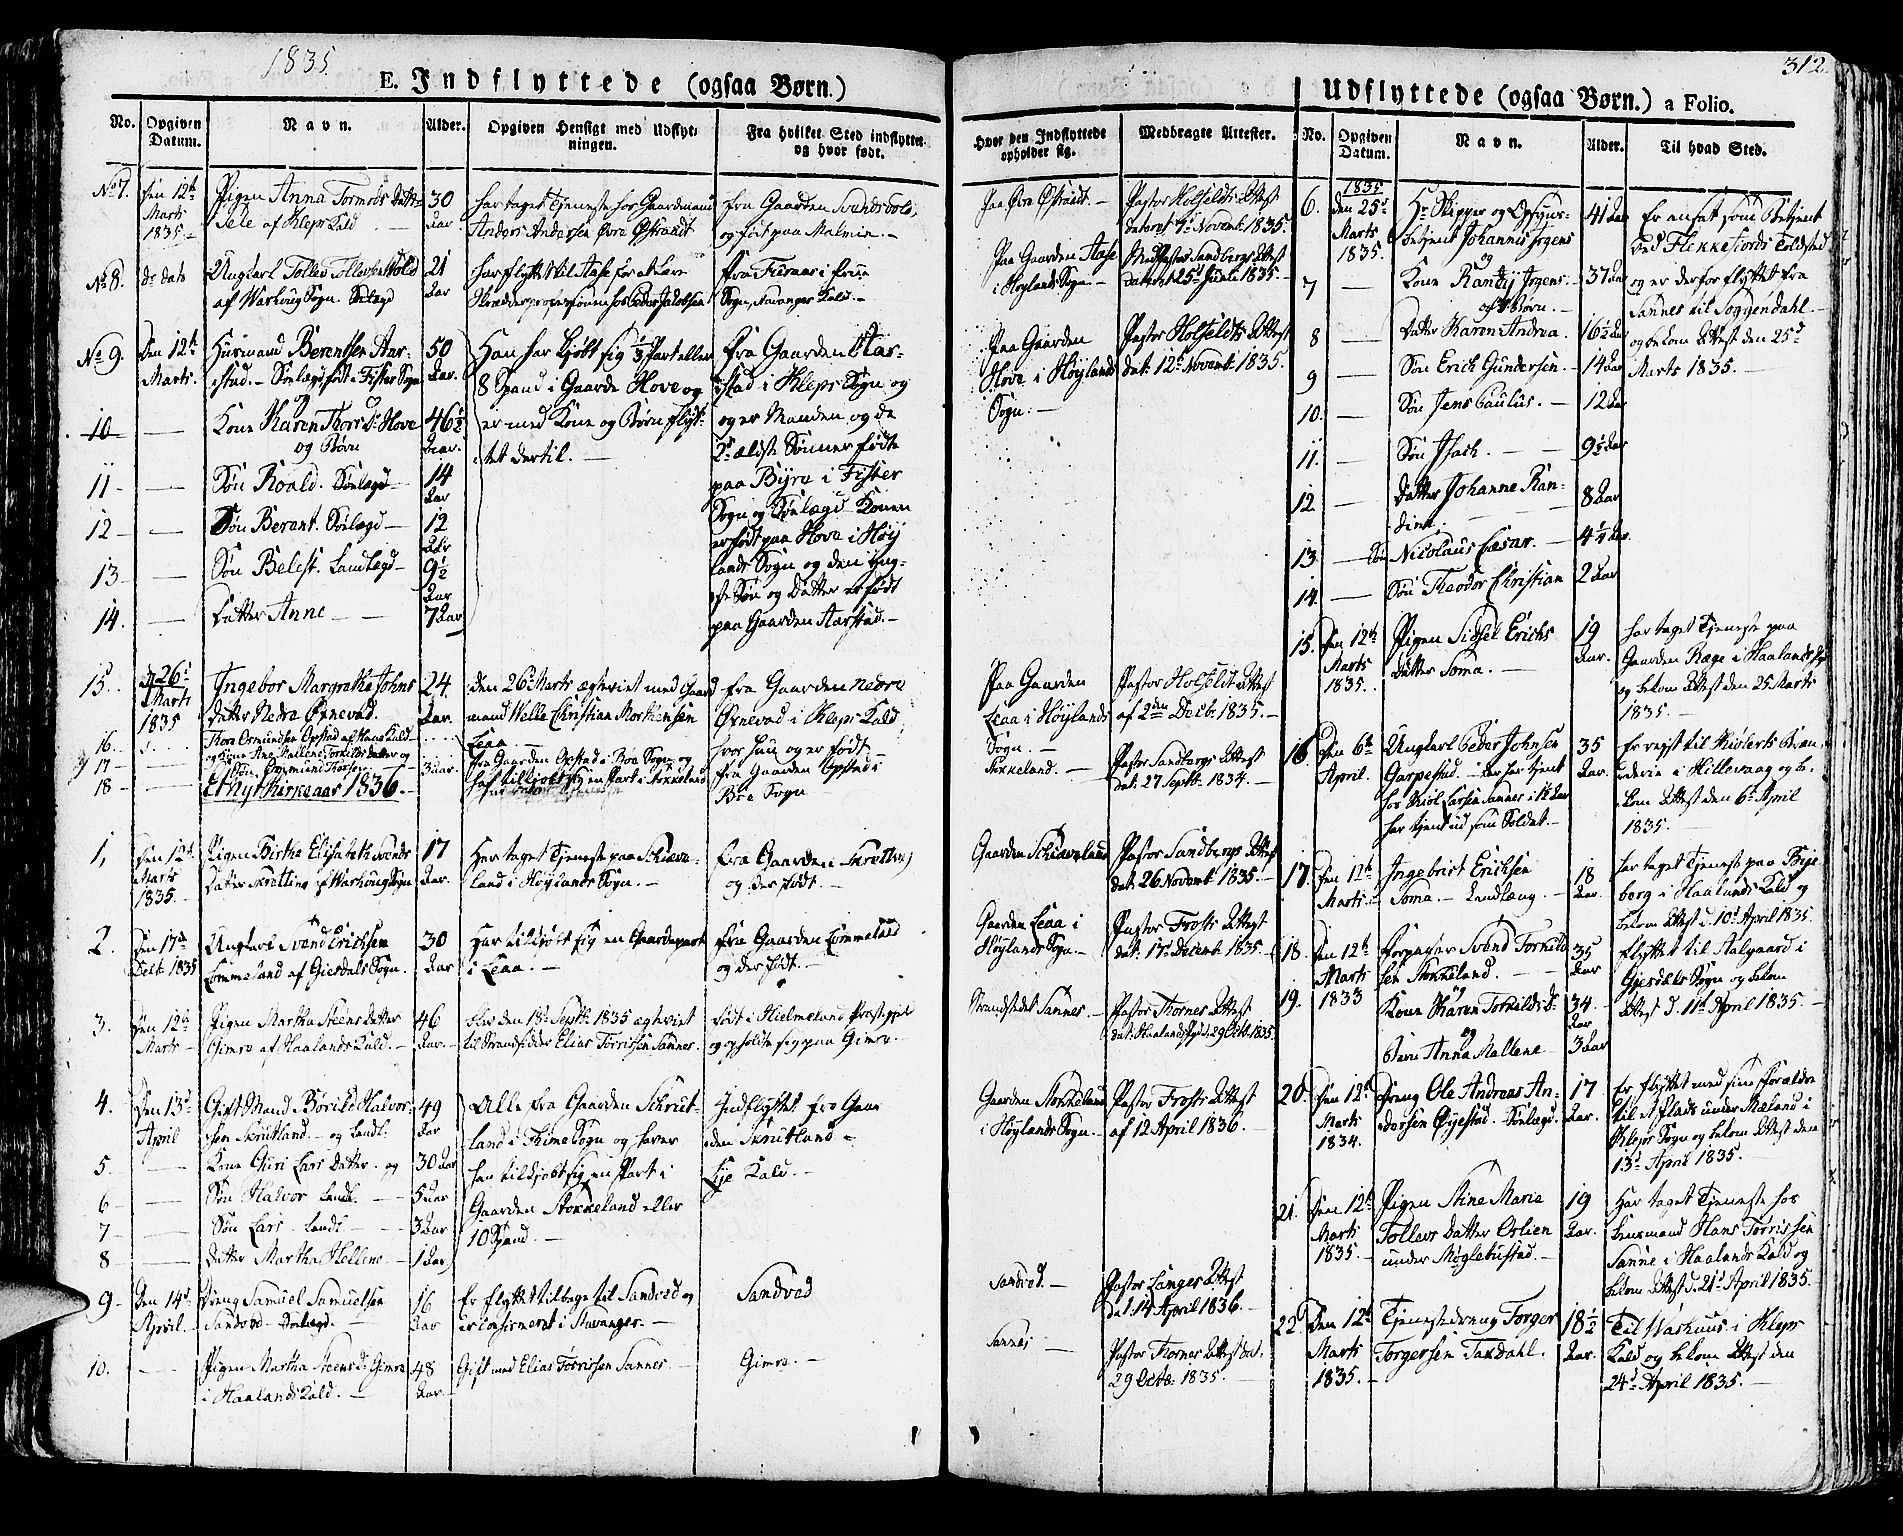 1835
E. Indflyttede (ogsaa Børn.)
No.
Opgiven Datum.
Navn.
Alder.
Opgiven Hensigt med Udflyt-
ningen.
Fra hvilket Sted indflyttet
og hvor født.
No 7.
Den 12te
Marts
1835.
Pigen Anna Tormods Datter
Sele af Kleps Kald
30
Aar
har taget Tjeneste hos Gaardmand
Anders Andersen Øvre Østraadt
fra Gaarden
og født paa Malmin.
No 8.
do dato
Ungkarl Tollev Tollevsen
af Warhoug Sogn Sølægd
21
Aar
har flyttet til Aase for at lære
Skrædderprofessionen hos Peder Jakobsen
fra
Sogn, Stavanger Kald.
No 9.
Den 12te
Marts.
Huusmand Berentsen Aar-
stad. Sølægd født i Fister Sogn
50
Aar.
Han har kjøbt sig 1/3 Part eller
8 Spand i Gaarde Hove og
er med Kone og Børn flyt-
tet dertil.
fra Gaarden Aar-
stad i Kleps Sogn og
og er Manden og de
2de ældste Sønner fødte
paa Byre i Fister
Sogn og Sølægd Konen
er født paa Hove i Høy
lands Sogn og den yng-
ste Søn og Datter er født
paa Gaarden Aarstad.
10
Kone Karen Thors D. Hove
og Børn
46½
Aar.
11
Søn Roald. Sølægd
14
Aar
12
Søn Berent. Sølægd
12
Aar
13
Søn Belest. Landlægd
9½
Aar
14.
Datter Anne
7 Aar
15.
D. 26de
Marts
1835
Ingebor Margretha Johns
Datter Nedre Ørnevad.
24.
Aar.
den 26de Marts ægteviet med Gaard
mand Welle Christian Morthensen
Leaa
fra Gaarden Nedre
Ørnevad i Kleps Kald
hvor hun og er født
16
Thore Ormundsen Opstad af Haas Kald
17
og Kone Ane Mallene Torkelds Datter og
Søn Ormund Thoresen
3 aar.
fra Gaarden Opstad i Bøe Sogn og
har tilkjøbt sig en Part i Stokkeland
fra Gaarden Opstad i
Bøe Sogn
18
Et Nyt Kirkeaar 1836.
1,
Den 12te
Marts
1835.
Pigen Birtha Elisabeth Svends
Datter Skretting af Warhoug Sogn
17
Aar.
Har taget Tjeneste paa Skieve-
land i Høylands Sogn.
fra Gaarden Skretting
og der født.
2.
Den 17de
Decb. 1835
Ungkarl Svend Erichsen
Lommeland af Giesdals Sogn.
30
Aar
Har tilkjøbt sig en Gaardepart
i Leaa.
fra Gaarden Lommeland
og der født.
3.
Den 12te
Marts
Pigen Martha Steens Datter
Gimre af Haalands Kald.
46
Aar.
blev den 18de Septbr. 1835 ægteviet
til Strandsidder Elias Torrissen Sannes.
født i Hielmeland Præstegield
og opholdte sig paa Gimre.
4.
Den 13de
April
Gift Mand Børild Halvor-
sen Skrutland og Landl.
49
Aar
Alle fra Gaarden Skrut-
land i Thime Sogn og haver
han tilkjøbt sig en Part i
Gaarden Stokkeland eller
10 Spand.
Indflyttet fra Gaar
den Skrutland
Lye Kald.
5.
Kone Guri Lars Datter. og
30 Aar
6
Søn Halvor Landl.
5 Aar
7
Søn Lars. Landl.
3 Aar
8
Datter Martha Hellene
1 Aar
9
Den 14de
April
Dreng Samuel Samuelsen
Sandved. Sølægd.
16
Aar
Er flyttet tilbage til Sandved og
er confirmeret i Stavanger.
Sandved
10.
Pigen Martha Steens D. Gimre
i Haalands Kald.
48
Aar
Gift med Elias Torrissen Sannes
Gimre.
312
Udflyttede (ogsaa Børn.) a Folio.
Hvor den Indflyttede
opholder sig.
Medbragte Attester.
No.
Opgiven
Datum.
Navn.
Alder.
Til hvad Sted.
Paa Øvre Østraadt.
Pastor Holfeldts Attest
dateret 7de Novemb. 1835.
Paa Gaarden Aase
i Høylands Sogn
Pastor Sandbergs Attest
Dateret 25de Junii 1835.
Paa Gaarden
Hove i Høyland
Sogn.
Pastor Holfeldts Attest
dat. 12te Novemb. 1835.
Paa Gaarden
Leaa i Høylands
Sogn.
Pastor Holfeldts Attest
af 2den Decb. 1835.
Stokkeland.
Pastor Sandbergs Attest
dat. 27 Septb. 1834.
Gaarden Schiæveland
Pastor Sandbergs Attest
dat. 26 Novemb. 1835.
Gaarden Leaa i
Høylands Sogn
Pastor Frosts Attest
dat. 17de Decemb. 1835.
Strandstedet Sannes.
Pastor Thornes Attest
dat. Haalands Pgd. 29 Octb. 1835.
Gaarden Stokkeland
i Høylands Sogn.
Pastor Frosts Attest
af 12 April 1836.
Sandved.
Pastor Langes Attest
dat. 14 April 1836.
Sannes
Pastor Thornes Attest dat.
29 Octb. 1835.
6.
1835
den 25de
Marts
1835.
Hr. Skipper og Opsyns-
betjent Johannes Jørgens
og
41 Aar
Er ansat som Betjent
ved Flekkefiords Toldsted
og er derfor flyttet fra
Sannes til Soggendahl
og bekom Attest den 25de
Marts 1835.
7
Kone Randy Jørgens.
og Børn.
37 Aar
8
Datter Karen Andrea.
16½ Aar
9
Søn Erich Gundersen.
14 Aar
10.
Søn Jens Paulus.
12 Aar
11.
Søn Isach.
9½ Aar
12
Datter Johanne Ran-
dine.
8 Aar
13.
Søn Nicolaus Cæsar.
4½ Aar
14.
Søn Theodor Christian
2 Aar
15.
Den 12te
Marts
1835.
Pigen Sidsel Erichs
Datter Soma.
19
Aar.
har taget Tjeneste paa
Gaarden Ræge i Haalands
og bekom Attest den 25 Marts
1835.
16
Den 6te
April.
Ungkarl Peder Johnsen
Garpestad. der har tjent
hos Niol Larsen Sannes i 1½ Aar
har tjent ud som Soldat.
35
Aar.
Er reist til Kiølerts Bræn
derie i Hillevaag og be-
kom Attest den 6te April
1835.
17
Den 12te
Marts.
Ingebrict Erichsen
Soma. Landlæg.
18
Aar.
har taget Tjeneste paa Byb
berg i Haalands Kald og
bekom Attest d. 10de April 1835.
18.
Den 12te
Marts
1833
Svend Torkild
sen Stokkeland.
og
35
Aar
flyttet til Aalgaard i
Gjesdals Sogn og bekom
Attest d. 11te April 1835.
19.
Kone Karen Torkilds D.
og
34.
Aar
Barn Anna Mallene
3 Aar
20.
Den 12te
Marts
1834.
Dreng Ole Andreas An-
dersen Øyestad. Sølægd.
17
Aar.
Er flyttet med sine Forældre
til et Plads under Mæland i
Kleps Sogn og bekom Attest den
13de April 1835.
21.
Den 12te
Marts
1835.
Pigen Stine Maria
Tollevs Datter Orlien
under Møglebustad.
19
Aar.
Har taget Tjeneste hos
Lensmand Hans Torrissen
Sanne i Haalands Kald og
bekom Attest d. 21de April 1835.
22.
Den 12te
Marts
1835.
Tjenestedreng Torger
Torgersen Taxdahl.
18½
Aar.
Til Warhuus i Kleps
Kald og bekom Attest den
24de April 1835.